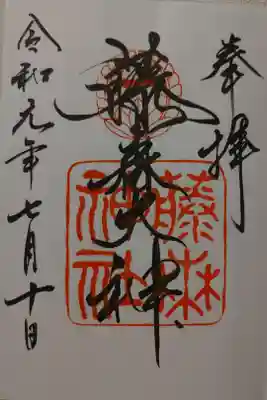 奉拝
藤森大神
藤森神社
令和元年七月十日